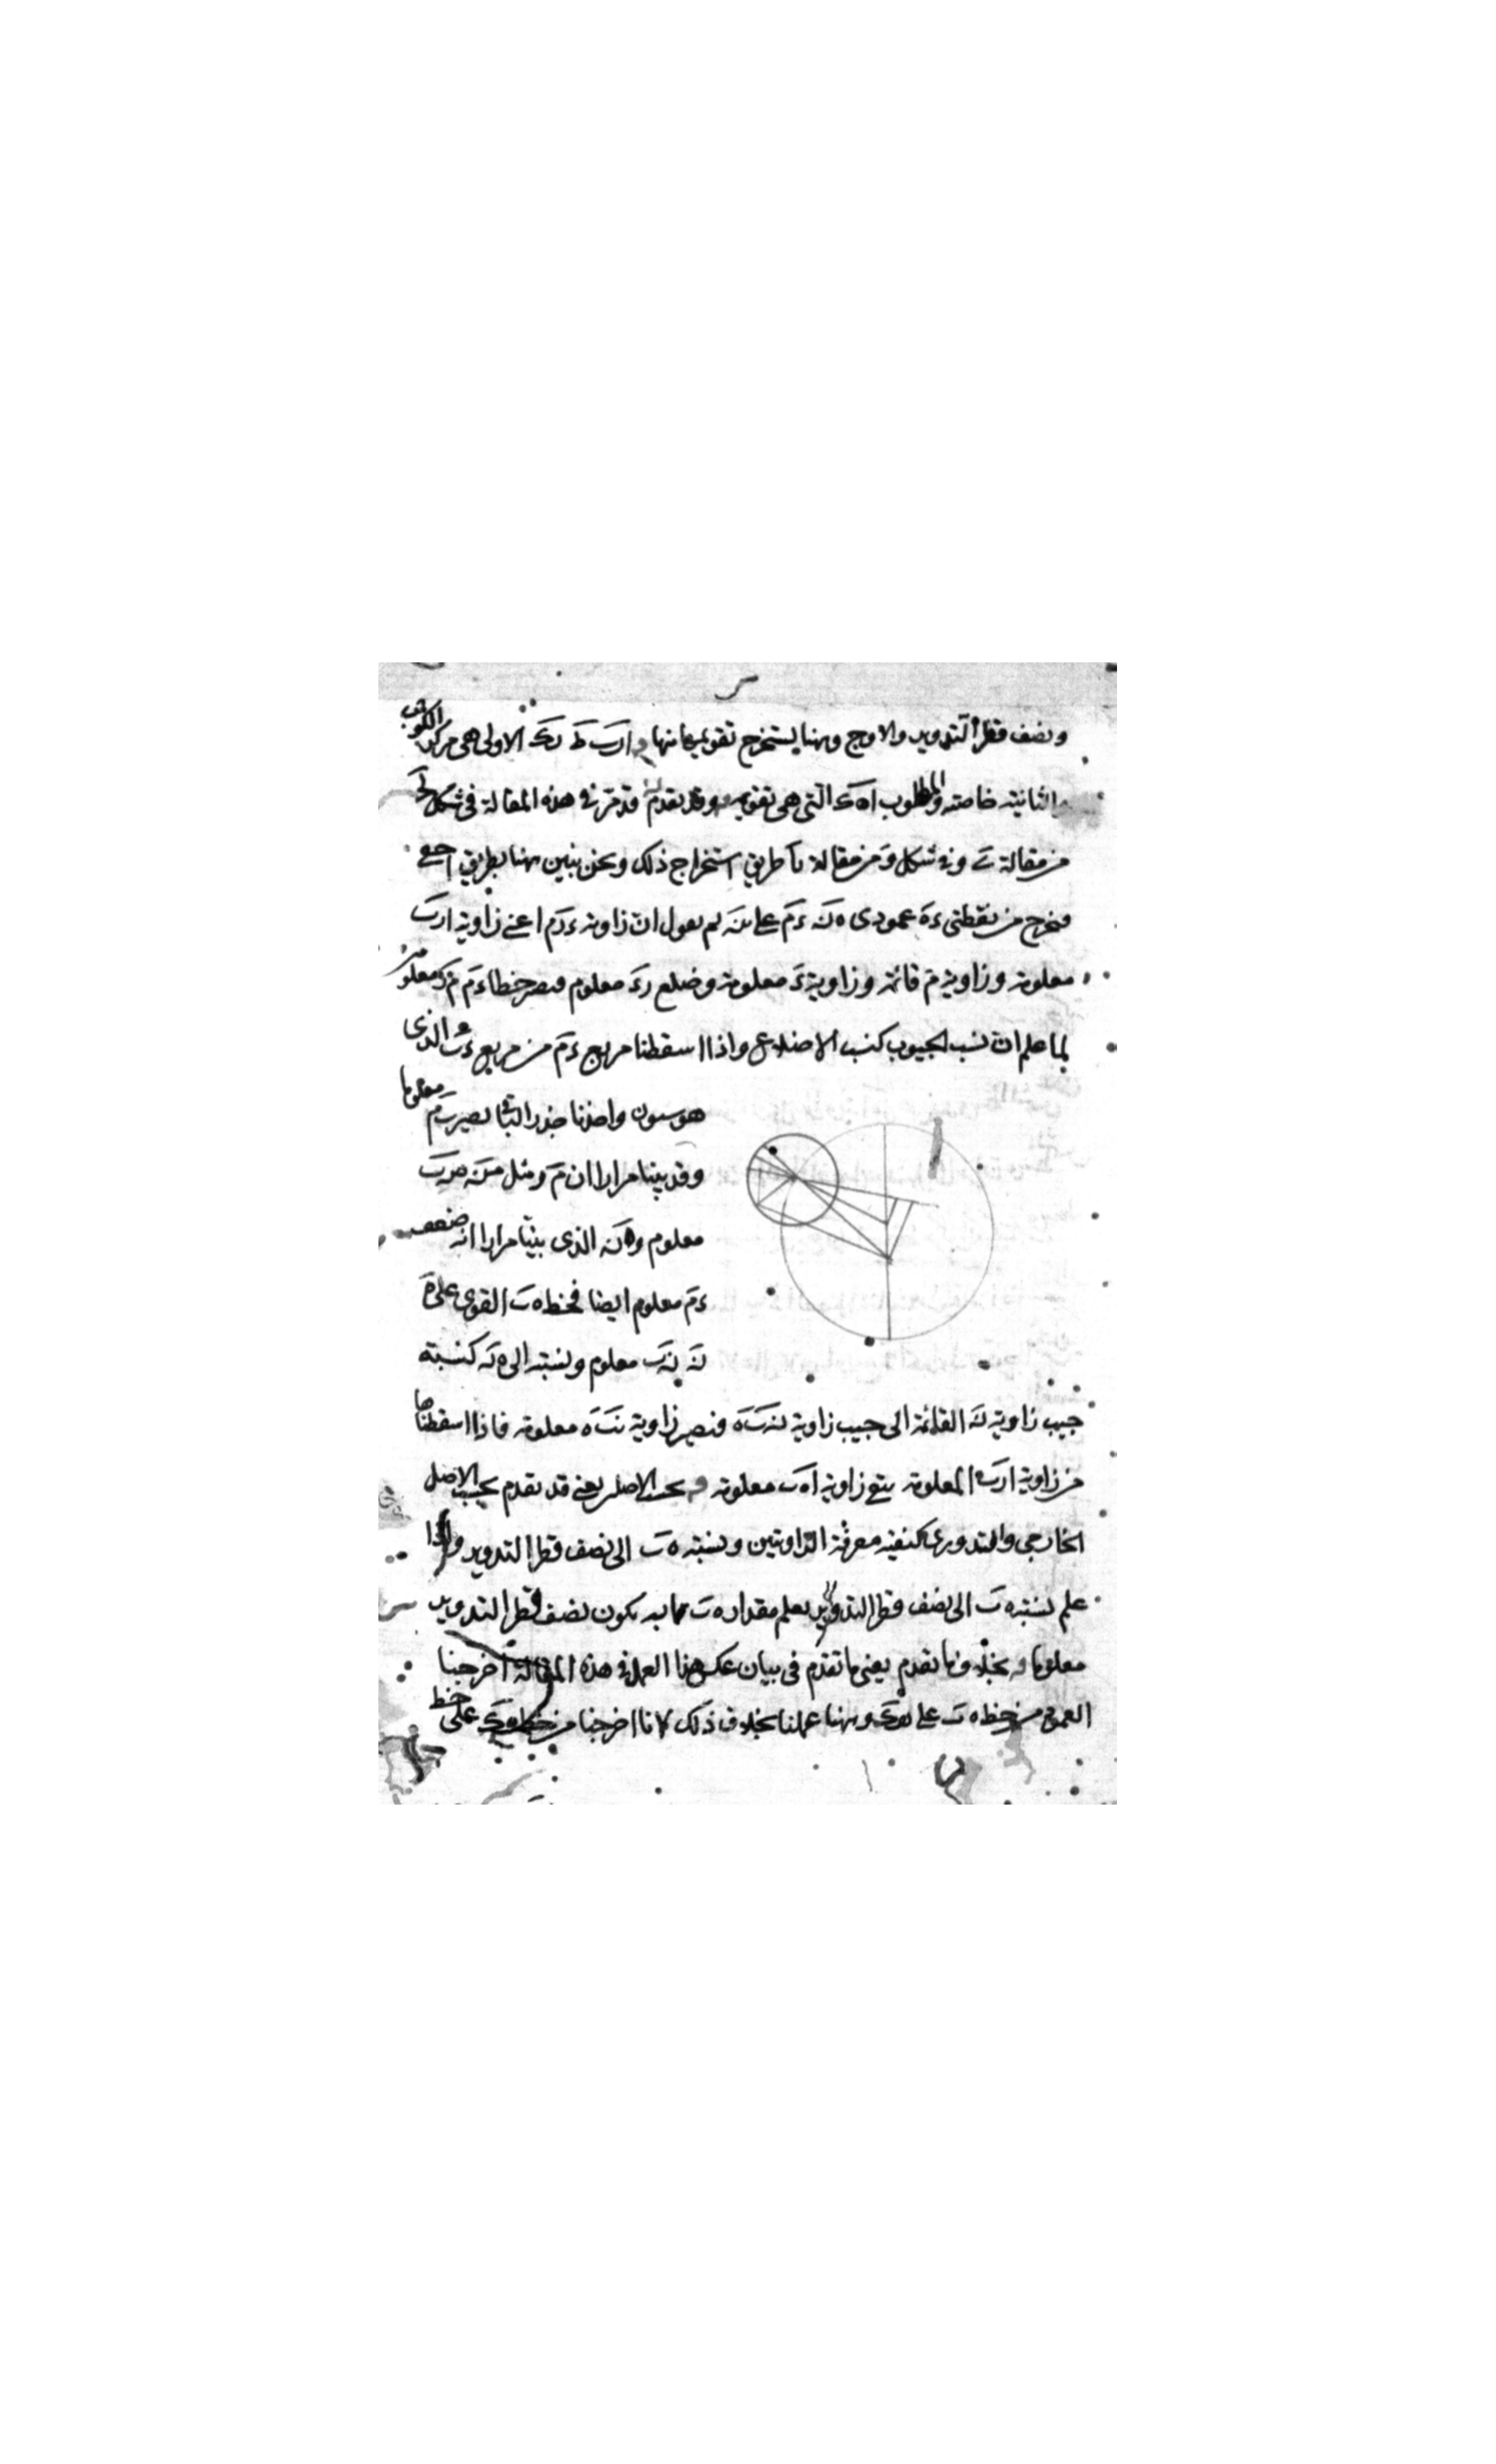 ونصف قطر التدوير والاوج وههنا يستخرج تقويمها منها و ارب ط رك الاولى هى مركز الكوكب
والثانية خاصته والمطلوب اهك التى هى تقويمه وقد تقدم قد مر فى هذه المقالة فى شكل
من مقالة ى وفى شكل و من مقالة يا طريق استخراج ذلك ونحن نبين ههنا بطريق اجمع
فنخرج من نقطتى ء ه عمودى ه ن ء م على ب ن ثم نقول ان زاوية ء ر م اعنى زاوية ارب
معلومة وزاوية م قائمة وزاوية ء معلومة وضلع ر ء معلوم فيصير خطا ء م م ر معلومين
لما علم ان نسب الجيوب كنسب الاضلاع واذا اسقطنا مربع ء م من مربع ء ب الذى
هو ستون واخذنا جذر الباقى يصير ب م معلوما
وقد بينا مرارا ان م ر مثل م ن فر ب
معلوم و ه ن الذى بينا مرارا انه ضعف
ء م معلوم ايضا فخط ه ب القوى على ه
ن ن ب معلوم ونسبته الى ه ن كنسبة
جيب زاوية ن القائمة الى جيب زاوية ن ب ه فتصير زاوية ن ب ه معلومة فاذا اسقطناها
من زاوية ارب المعلومة يبقى زاوية اه ب معلومة و بحسب الاصل يعنى قد تقدم بحسب الاصل
الخارجى والتدويرى كيفية معرفة الزاويتين ونسبة ه ب الى نصف قطر التدوير واذا
علم نسبة ه ب الى نصف قطر التدوير يعلم مقدار ه ب بما به يكون نصف قطر التدوير
معلوما و بخلاف ما تقدم يعنى ما تقدم فى بيان عكس هذا العمل فى هذه المقالة اخرجنا
العمود من خط ه ب على وههنا عملنا بخلاف ذلك لانا اخرجنا من خط على خط